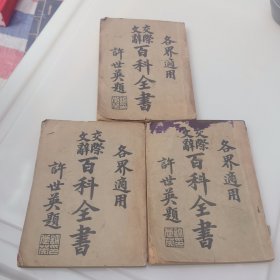 各界適用
交際文辭百科全書
許世英題
各界適用
交際文辭百科全書
許世英題
各界適用
交際文辭百科全書
許世英題